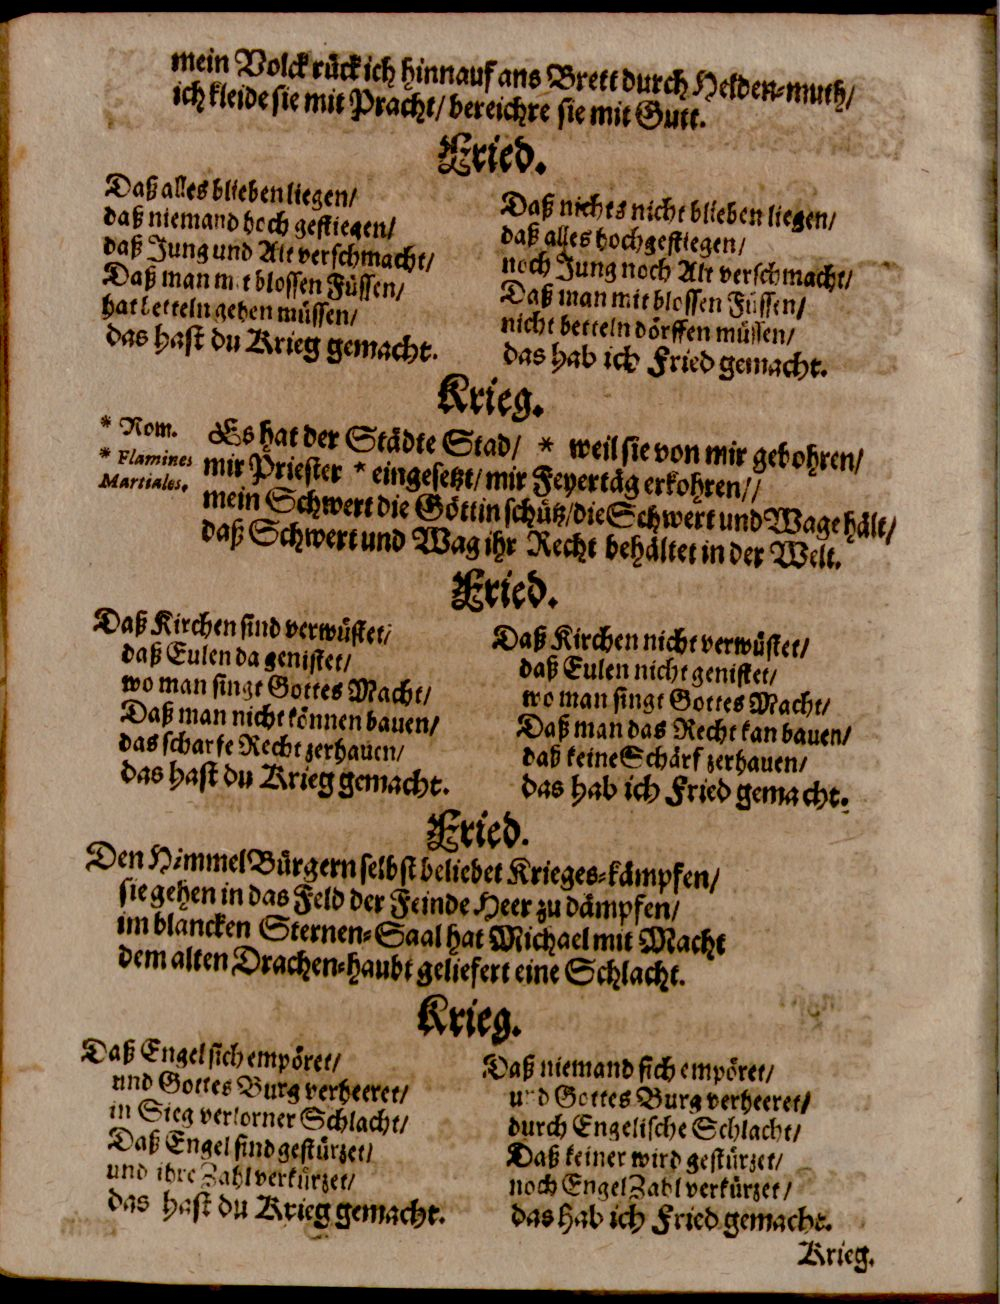 mein Volck rück ich hinnauf ans Brett durch Helden-muth/
ich kleide sie mit Pracht/ bereichre sie mit Gutt.
Fried.
Daß alles blieben liegen/
daß niemand hoch gestiegen/
daß Jung und Alt verschmacht/
Daß man mit blossen Füssen/
hat betteln gehen müssen/
das hast du Krieg gemacht.
Daß nichts nicht blieben liegen/
daß alles hochgestiegen/
noch Jung noch Alt verschmacht/
Daß man mit blossen Füssen/
nicht betteln dörffen müssen/
das hab ich Fried gemacht.
Krieg.
* Rom.
* Flamines
Martiales.
Es hat der Städte Stad/ * weil sie von mir gebohren/
mir Priester * eingesetzt/ mir Feyertäg erkohren//
mein Schwert die Göttin schütz/ die Schwert und Wage hält/
daß Schwert und Wag ihr Recht behältet in der Welt.
Fried.
Daß Kirchen sind verwüstet/
daß Eulen da genistet/
wo man singt Gottes Macht/
Daß man nicht können bauen/
das scharfe Recht zerhauen/
das hast du Krieg gemacht.
Daß Kirchen nicht verwüstet/
daß Eulen nicht genistet/
wo man singt Gottes Macht/
Daß man das Recht kan bauen/
daß keine Schärf zerhauen/
das hab ich Fried gemacht.
Fried.
Den Himmel Bürgern selbst beliebet Krieges-kämpfen/
sie gehen in das Feld der Feinde Heer zu dämpfen/
im blancken Sternen-Saal hat Michael mit Macht
dem alten Drachen-haubt geliefert eine Schlacht.
Krieg.
Daß Engel sich empöret/
und Gottes Burg verheeret/
in Sieg verlorner Schlacht/
Daß Engel sind gestürzet/
und ihre Zahl verkürzet/
das hast du Krieg gemacht.
Daß niemand sich empöret/
und Gottes Burg verheeret/
durch Engelische Schlacht/
Daß keiner wird gestürzet/
noch Engel Zahl verkürzet/
das hab ich Fried gemacht.
Krieg.